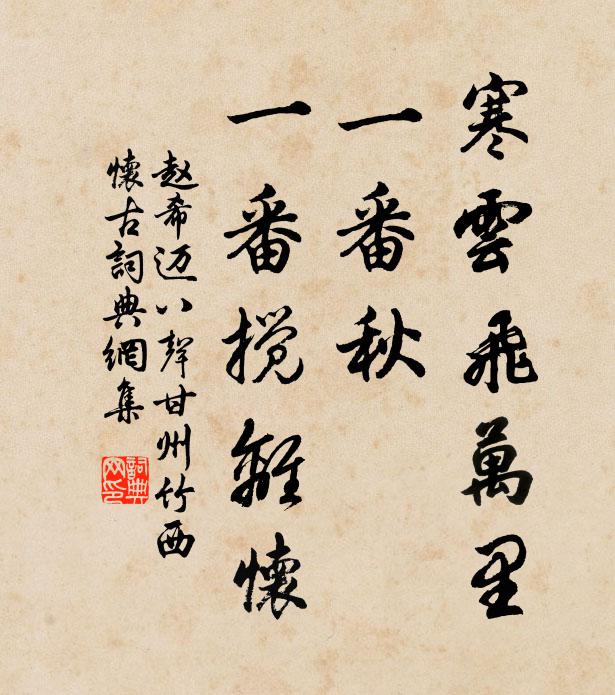 寒雲飛萬里
一番秋
一番搅離懷
赵希迈八聲甘州竹西
懷古詞典網集
詞典
网印